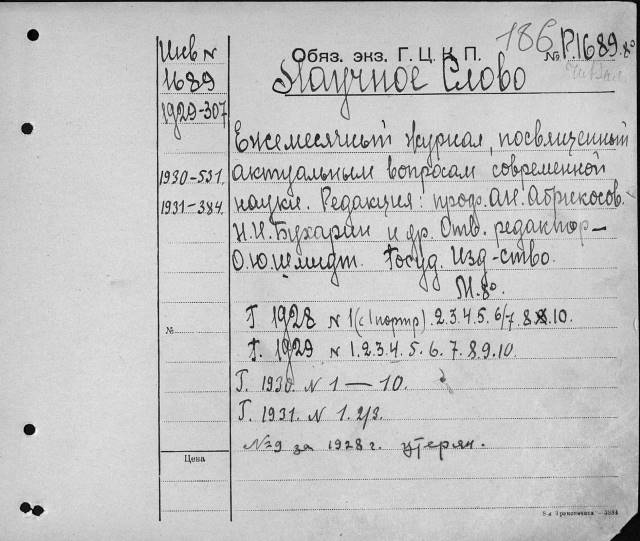 186 P1689.8°
Обяз. экз. Г. Ц. К. П. №
Научное Слово
Инв N
1689
1929-307
1930-531.
1931-384.
Ежемесячный журнал, посвященный
актуальным вопросам современной
науки. Редакция: проф. А.И. Абрикосов.
Н.И. Бухарин и др. Отв. редактор –
О.Ю. Шмидт. Госуд. Изд-ство.
М. 8°.
Г 1928 N 1 (с 1 портр). 2.3.4.5.6/7.8 10.
Г. 1929 N 1.2.3.4.5.6.7.8.9.10.
Г. 1930. N 1 — 10.
Г. 1931. N 1. 2/3.
№ 9 за 1928 г. утерян.
№
Цена